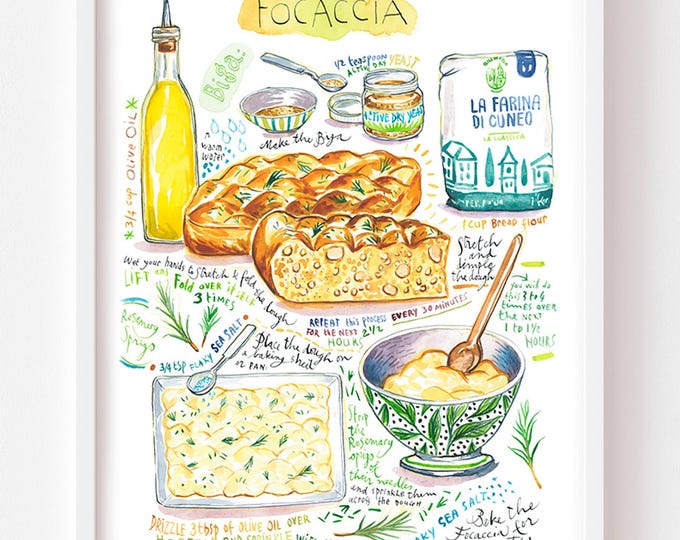 FOCACCIA
Biga.
1/2 teaspoon
ACTIVE DRY YEAST
ACTIVE DRY YEAST
warm
water
Make the Biga
3/4 cup OLIVE OIL
LA FARINA
DI CUNEO
LA CLASSICA
1 CUP BREAD flour
Stretch
and
dimple
the dough
Wet your hands to stretch & fold the dough
LIFT and FOLD OVER ITSELF
3 TIMES
REPEAT this PROCESS EVERY 30 MINUTES
FOR the NEXT 2 1/2
HOURS
you will do
this 3 to 4
times over
the next
1 to 1 1/2
HOURS
Rosemary
Sprigs
3/4 tsp FLAKY SEA SALT
Place the dough on
a baking sheet
or PAN
Strip
the
Rosemary
sprigs
of
their needles
and sprinkle them
across the dough
DRIZZLE 3 tbsp of OLIVE OIL OVER
AND SPRINKLE with
FLAKY SEA SALT
Bake the
Focaccia for